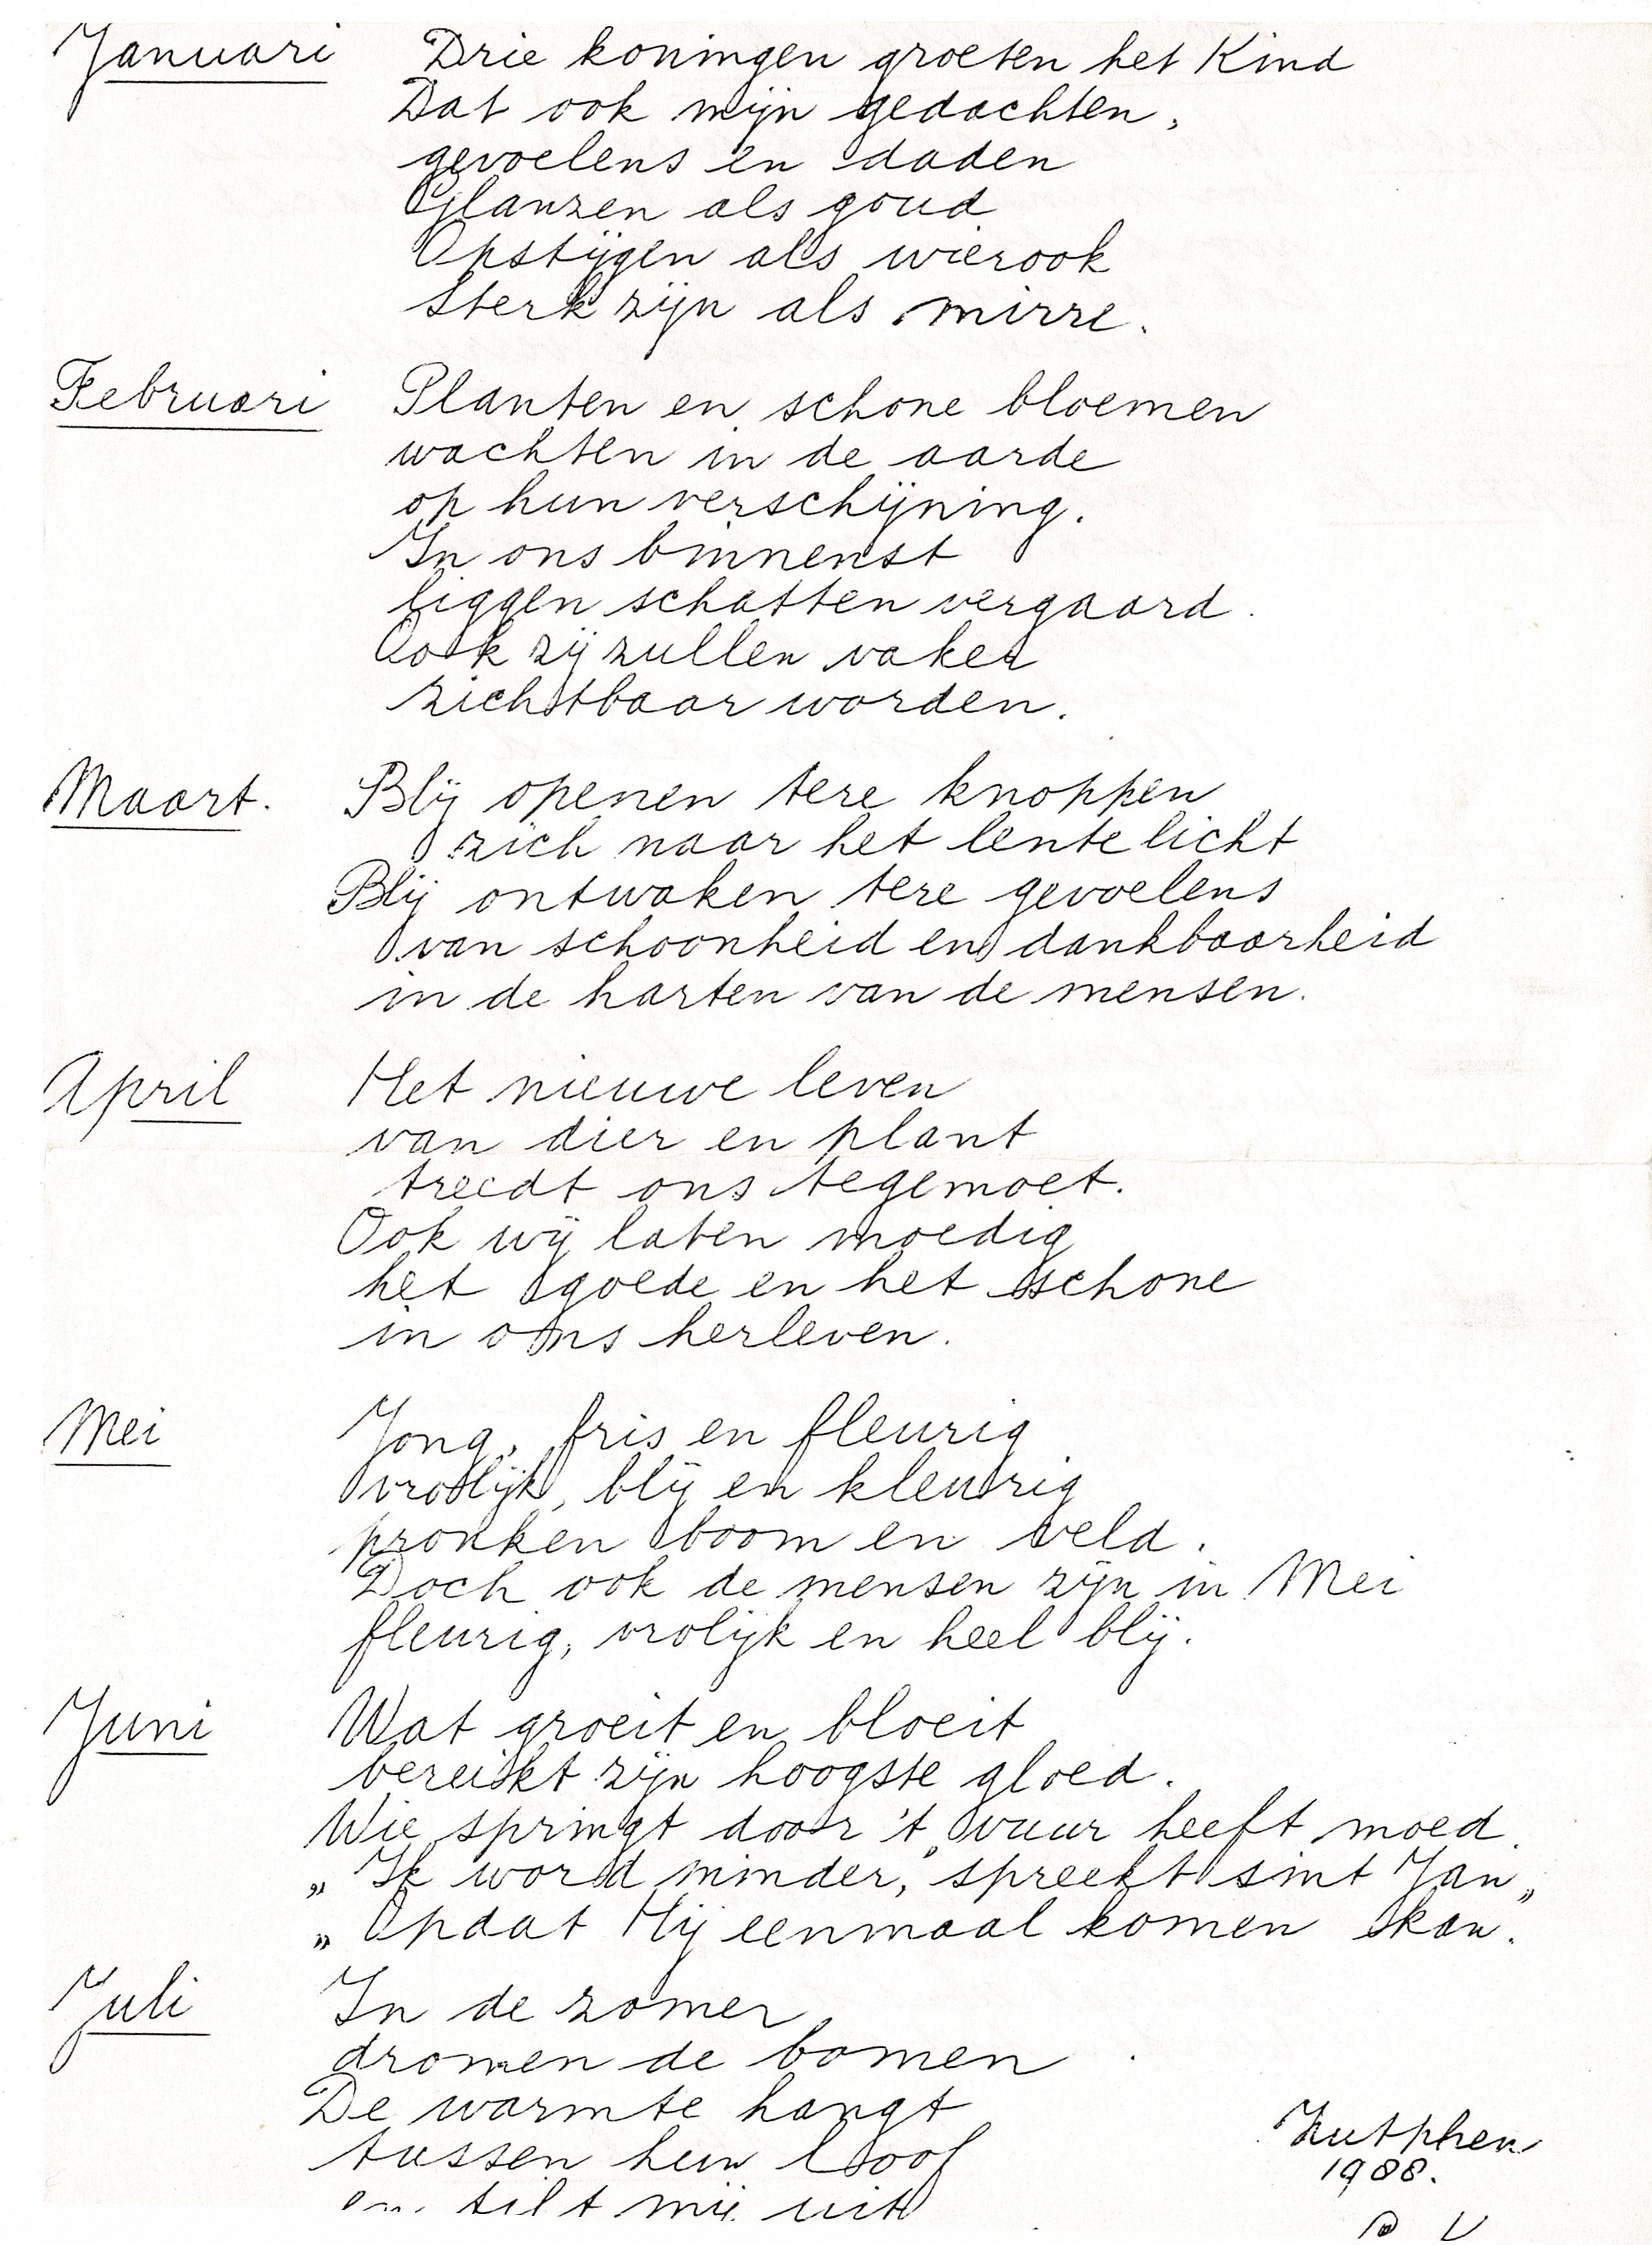 Januari Drie koningen groeten het Kind
Dat ook mijn gedachten,
gevoelens en daden
Glanzen als goud
Opstijgen als wierook
Sterk zijn als mirre.
Februari Planten en schone bloemen
wachten in de aarde
op hun verschijning.
In ons binnenst
liggen schatten vergaard.
Ook zij zullen vaker
zichtbaar worden.
Maart. Blij openen tere knoppen
zich naar het lente licht
Blij ontwaken tere gevoelens
van schoonheid en dankbaarheid
in de harten van de mensen.
April Het nieuwe leven
van dier en plant
treedt ons tegemoet.
Ook wij laten moedig
het goede en het schone
in ons herleven.
Mei Jong, fris en fleurig
vrolijk, blij en kleurig
pronken boom en veld.
Doch ook de mensen zijn in Mei
fleurig, vrolijk en heel blij.
Juni Wat groeit en bloeit
bereikt zijn hoogste gloed.
Wie springt door 't vuur heeft moed.
„Ik word minder," spreekt sint Jan„
„Opdat Hij eenmaal komen kan.
Juli In de zomer
dromen de bomen
De warmte hangt
tussen hun loof
en tilt mij uit
Zutphen
1988.